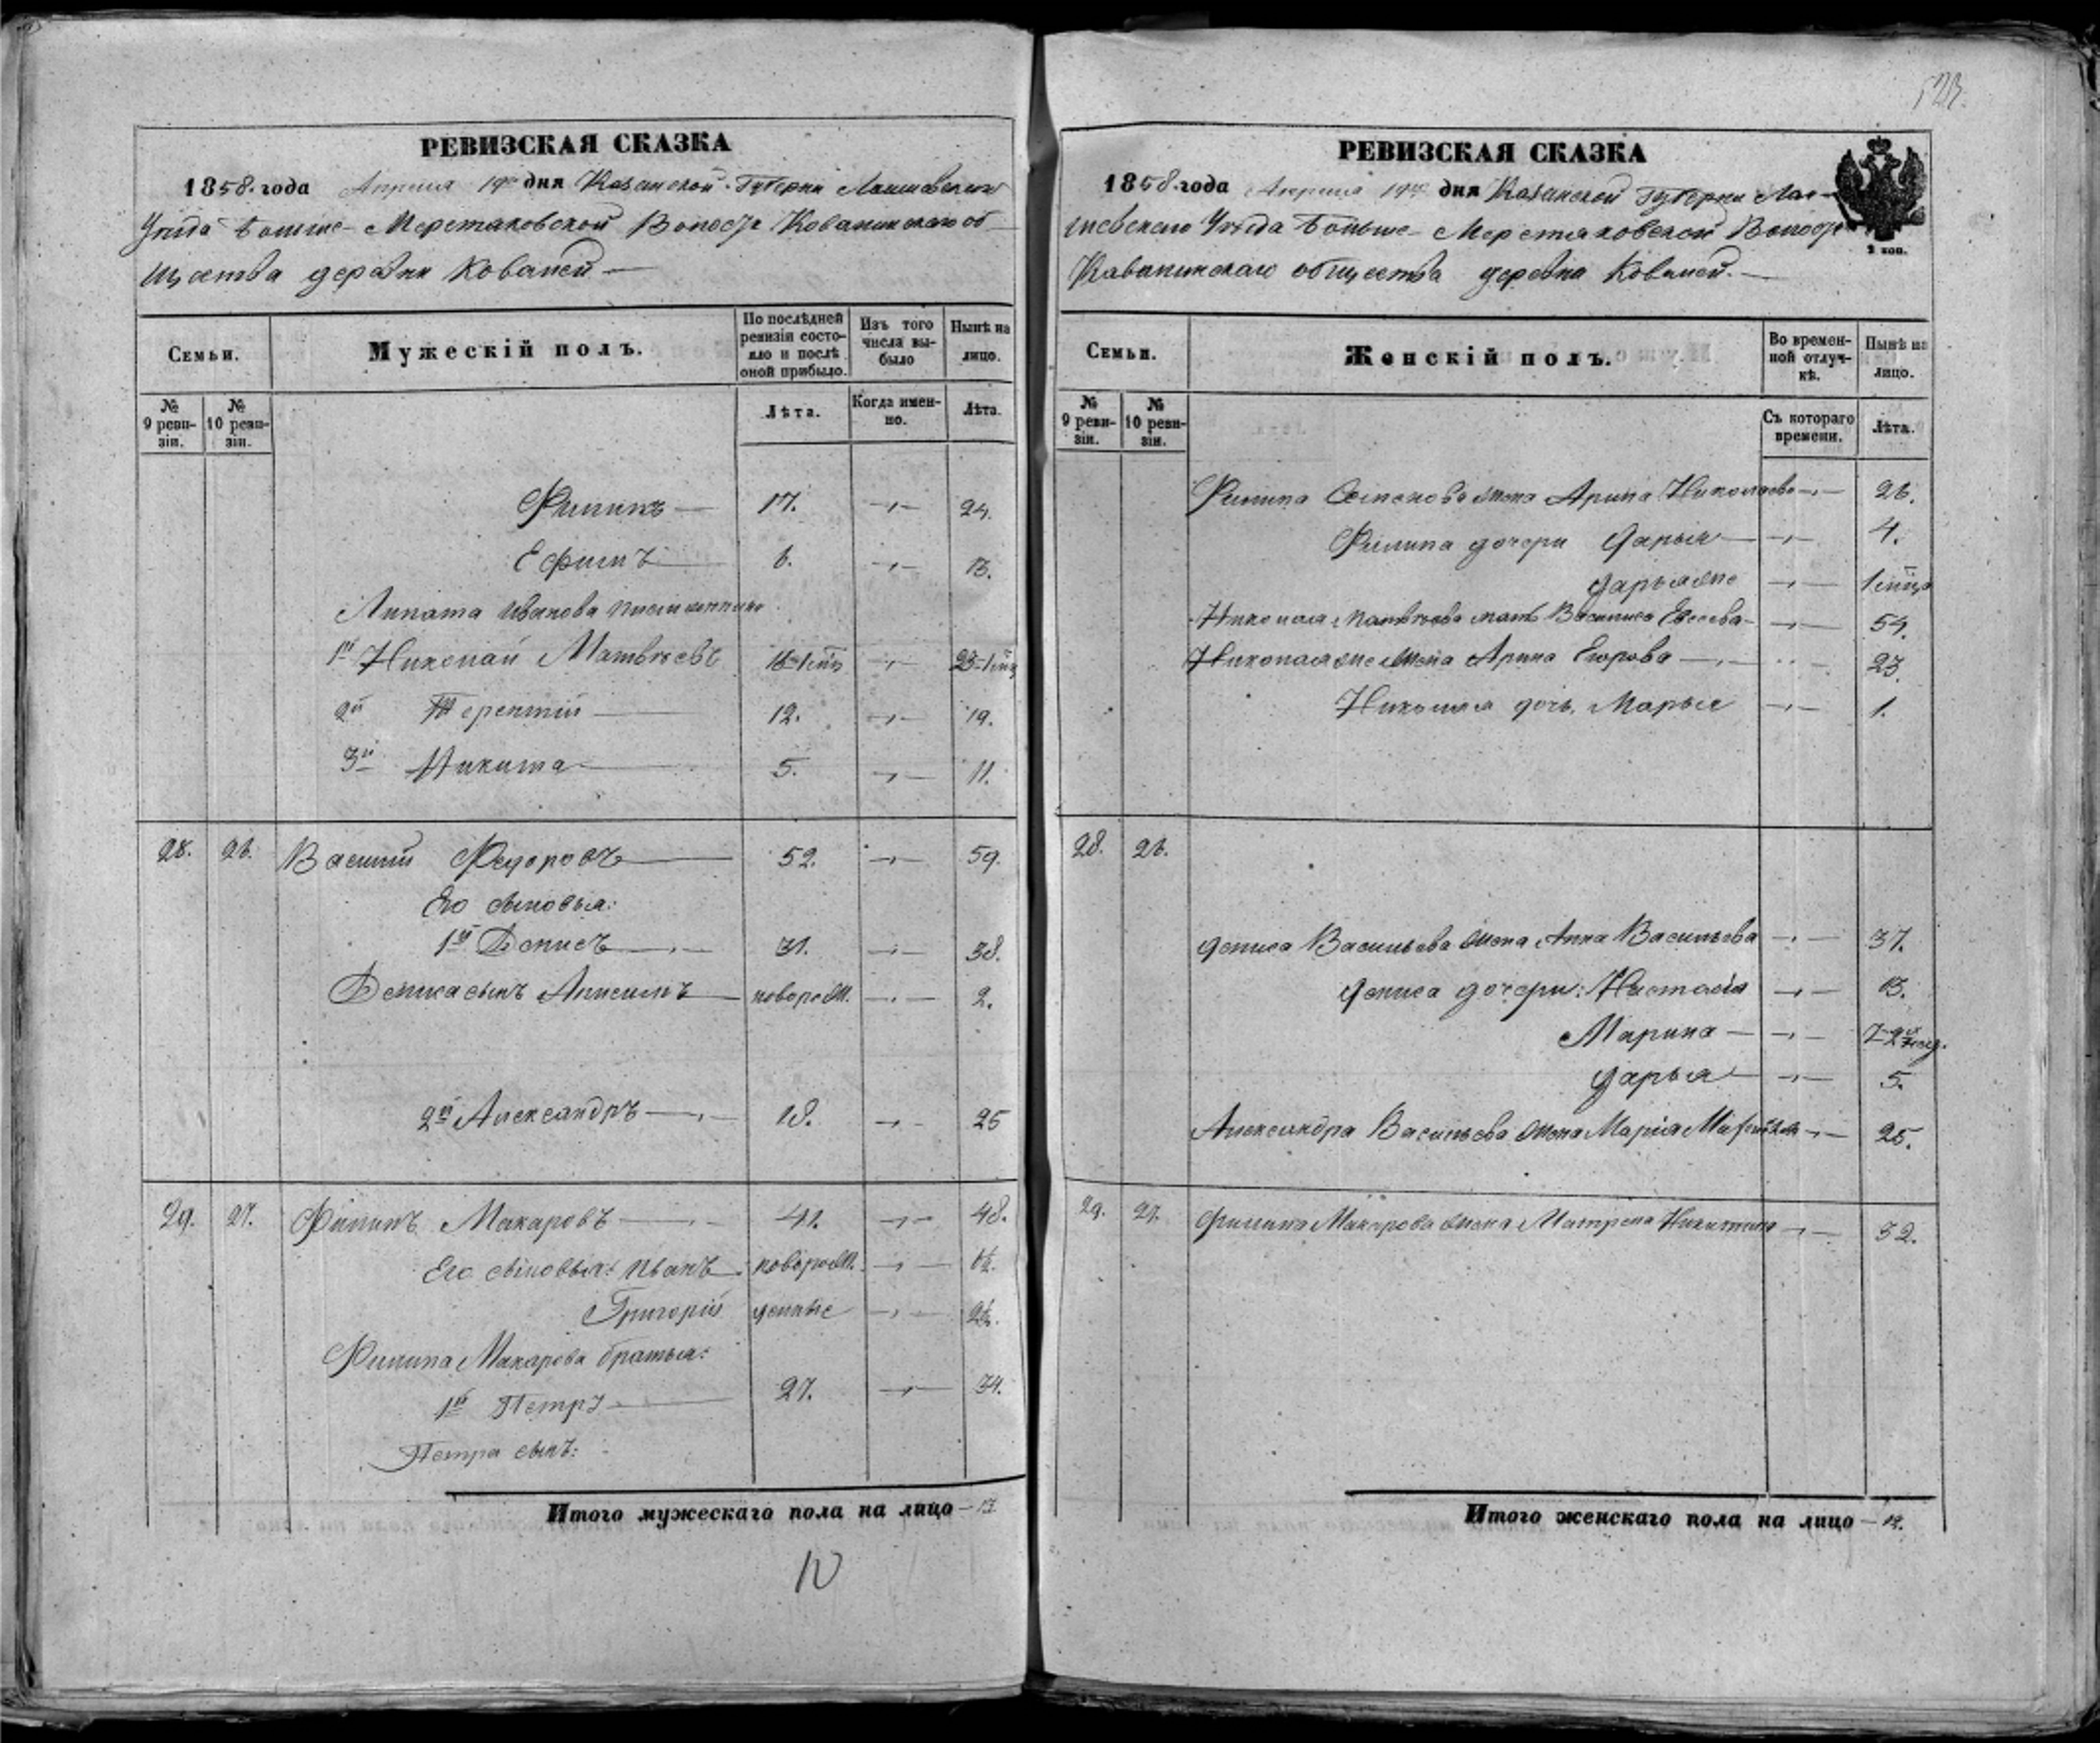 РЕВИЗСКАЯ СКАЗКА
1858 года Апреля 19го дня Казанской Губерніи Лаишевскаго
Уѣзда Больше-Меретяковской Волости Ковалинскаго об-
щества деревни Ковалей
Семьи.
Мужескій полъ.
По послѣдней ревизіи состо-
яло и послѣ
оной прибыло.
Изъ того
числа вы-
было
Нынѣ на
лицо.
№
9 реви-
зіи.
№
10 реви-
зіи.
Лѣта.
Когда имен-
но.
Лѣта.
Филипъ 17. 24.
Ефимъ 6. 13.
Липата Иванова
1й Николай Матвѣевъ
2й Терентій 12. 19.
3й Никита 5. 11.
28. 26. Василій Федоровъ 52. 59.
Его сыновья:
1й Денисъ 31. 38.
Дениса сынъ Анисимъ новорож. 2.
2й Александръ 18. 25
29. 27. Филипъ Макаровъ 41. 48.
Его сыновья: Иванъ новорож.
Григорій денные
Филипа Макарова братья:
1й Петръ 27. 34.
Петра сынъ:
Итого мужескаго пола на лицо
РЕВИЗСКАЯ СКАЗКА
1858 года Апреля 19го дня Казанской Губерніи Лаи-
шевскаго Уѣзда Больше-Меретяковской Волости
Ковалинскаго общества деревни Ковалей.
2 коп.
Семьи.
Женскій полъ.
Во времен-
ной отлуч-
кѣ.
Нынѣ на
лицо.
№
9 реви-
зіи.
№
10 реви-
зіи.
Съ котораго
времени.
Лѣта.
Филипа Семенова жена Арина Николаева 26.
Филипа дочери Дарья 4.
Дарья же
Николая Матвѣева мать Василиса Евсеева 54.
Николая же жена Арина Егорова 23.
Николая дочь Марья 1.
28. 26.
Дениса Васильева жена Анна Васильева 37.
Дениса дочери: Настасья 13.
Марина
Дарья 5.
Александра Васильева жена Марія 25.
29. 27. Филипа Макарова жена Матрена Никитина 32.
Итого женскаго пола на лицо